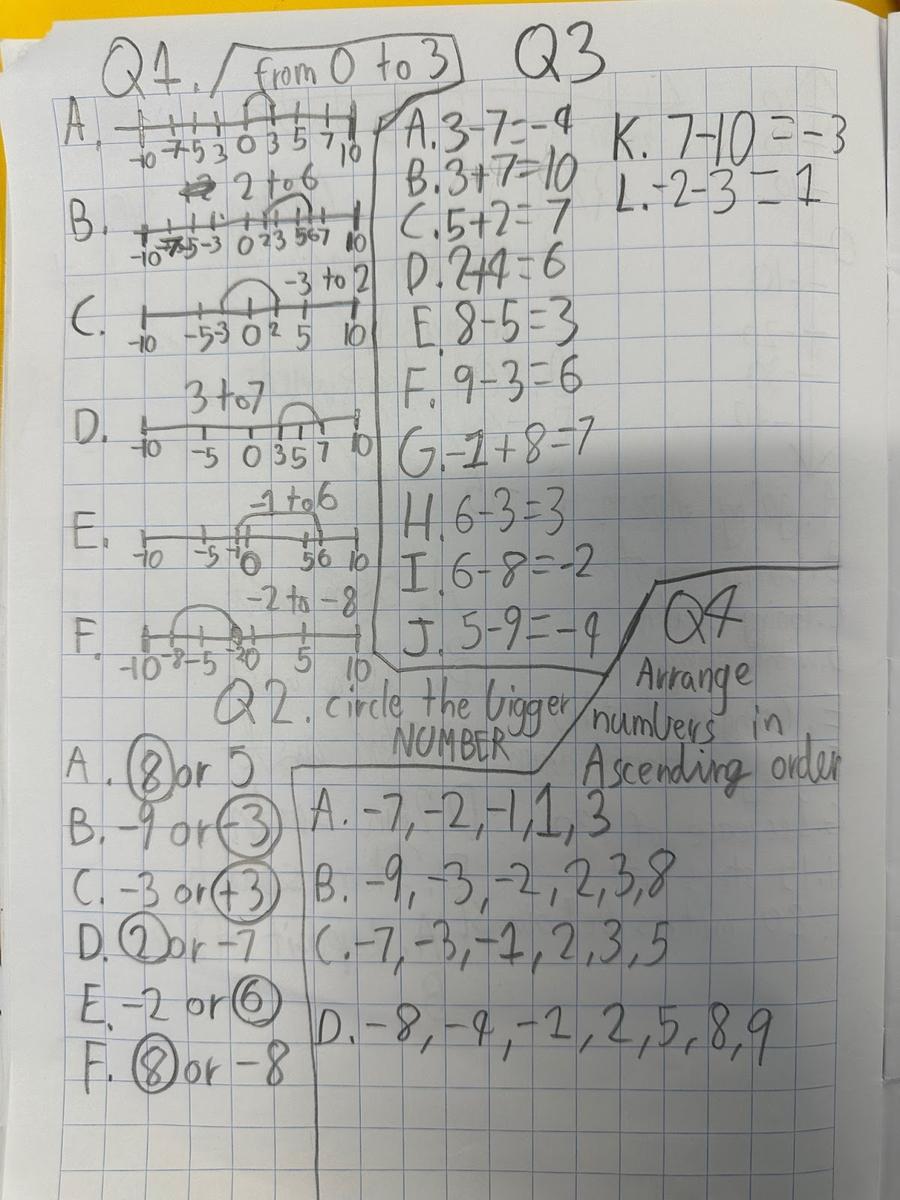 Q1. from 0 to 3
A. -10 -7 -5 -3 0 3 5 7 10
2 to 6
B. -10 -7 -5 -3 0 2 3 5 6 7 10
-3 to 2
C. -10 -5 -3 0 2 5 10
3 to 7
D. -10 -5 0 3 5 7 10
-1 to 6
E. -10 -5 -1 0 5 6 10
-2 to -8
F. -10 -8 -5 -2 0 5 10
Q2. circle the bigger
NUMBER
A. 8 or 5
B. -9 or -3
C. -3 or +3
D. 2 or -7
E. -2 or 6
F. 8 or -8
Q3
A. 3-7=-4
B. 3+7=10
C. 5+2=7
D. 2+4=6
E. 8-5=3
F. 9-3=6
G. -1+8=7
H. 6-3=3
I. 6-8=-2
J. 5-9=-4
K. 7-10=-3
L. -2-3=1
Q4
Arrange
numbers in
Ascending order
A. -7, -2, -1, 1, 3
B. -9, -3, -2, 2, 3, 8
C. -7, -3, -1, 2, 3, 5
D. -8, -4, -1, 2, 5, 8, 9